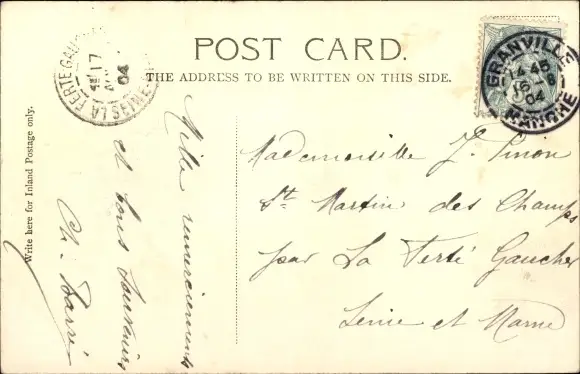 POST CARD.
THE ADDRESS TO BE WRITTEN ON THIS SIDE.
LA FERTE GAUCHER
17
04
SEINE
GRANVILLE
14 45
16 8
04
MANCHE
Write here for Inland Postage only.
Mille remerciements
et bons souvenirs
Ch. Barré
Mademoiselle J. Pinon
St Martin des Champs
par La Ferté Gaucher
Seine et Marne